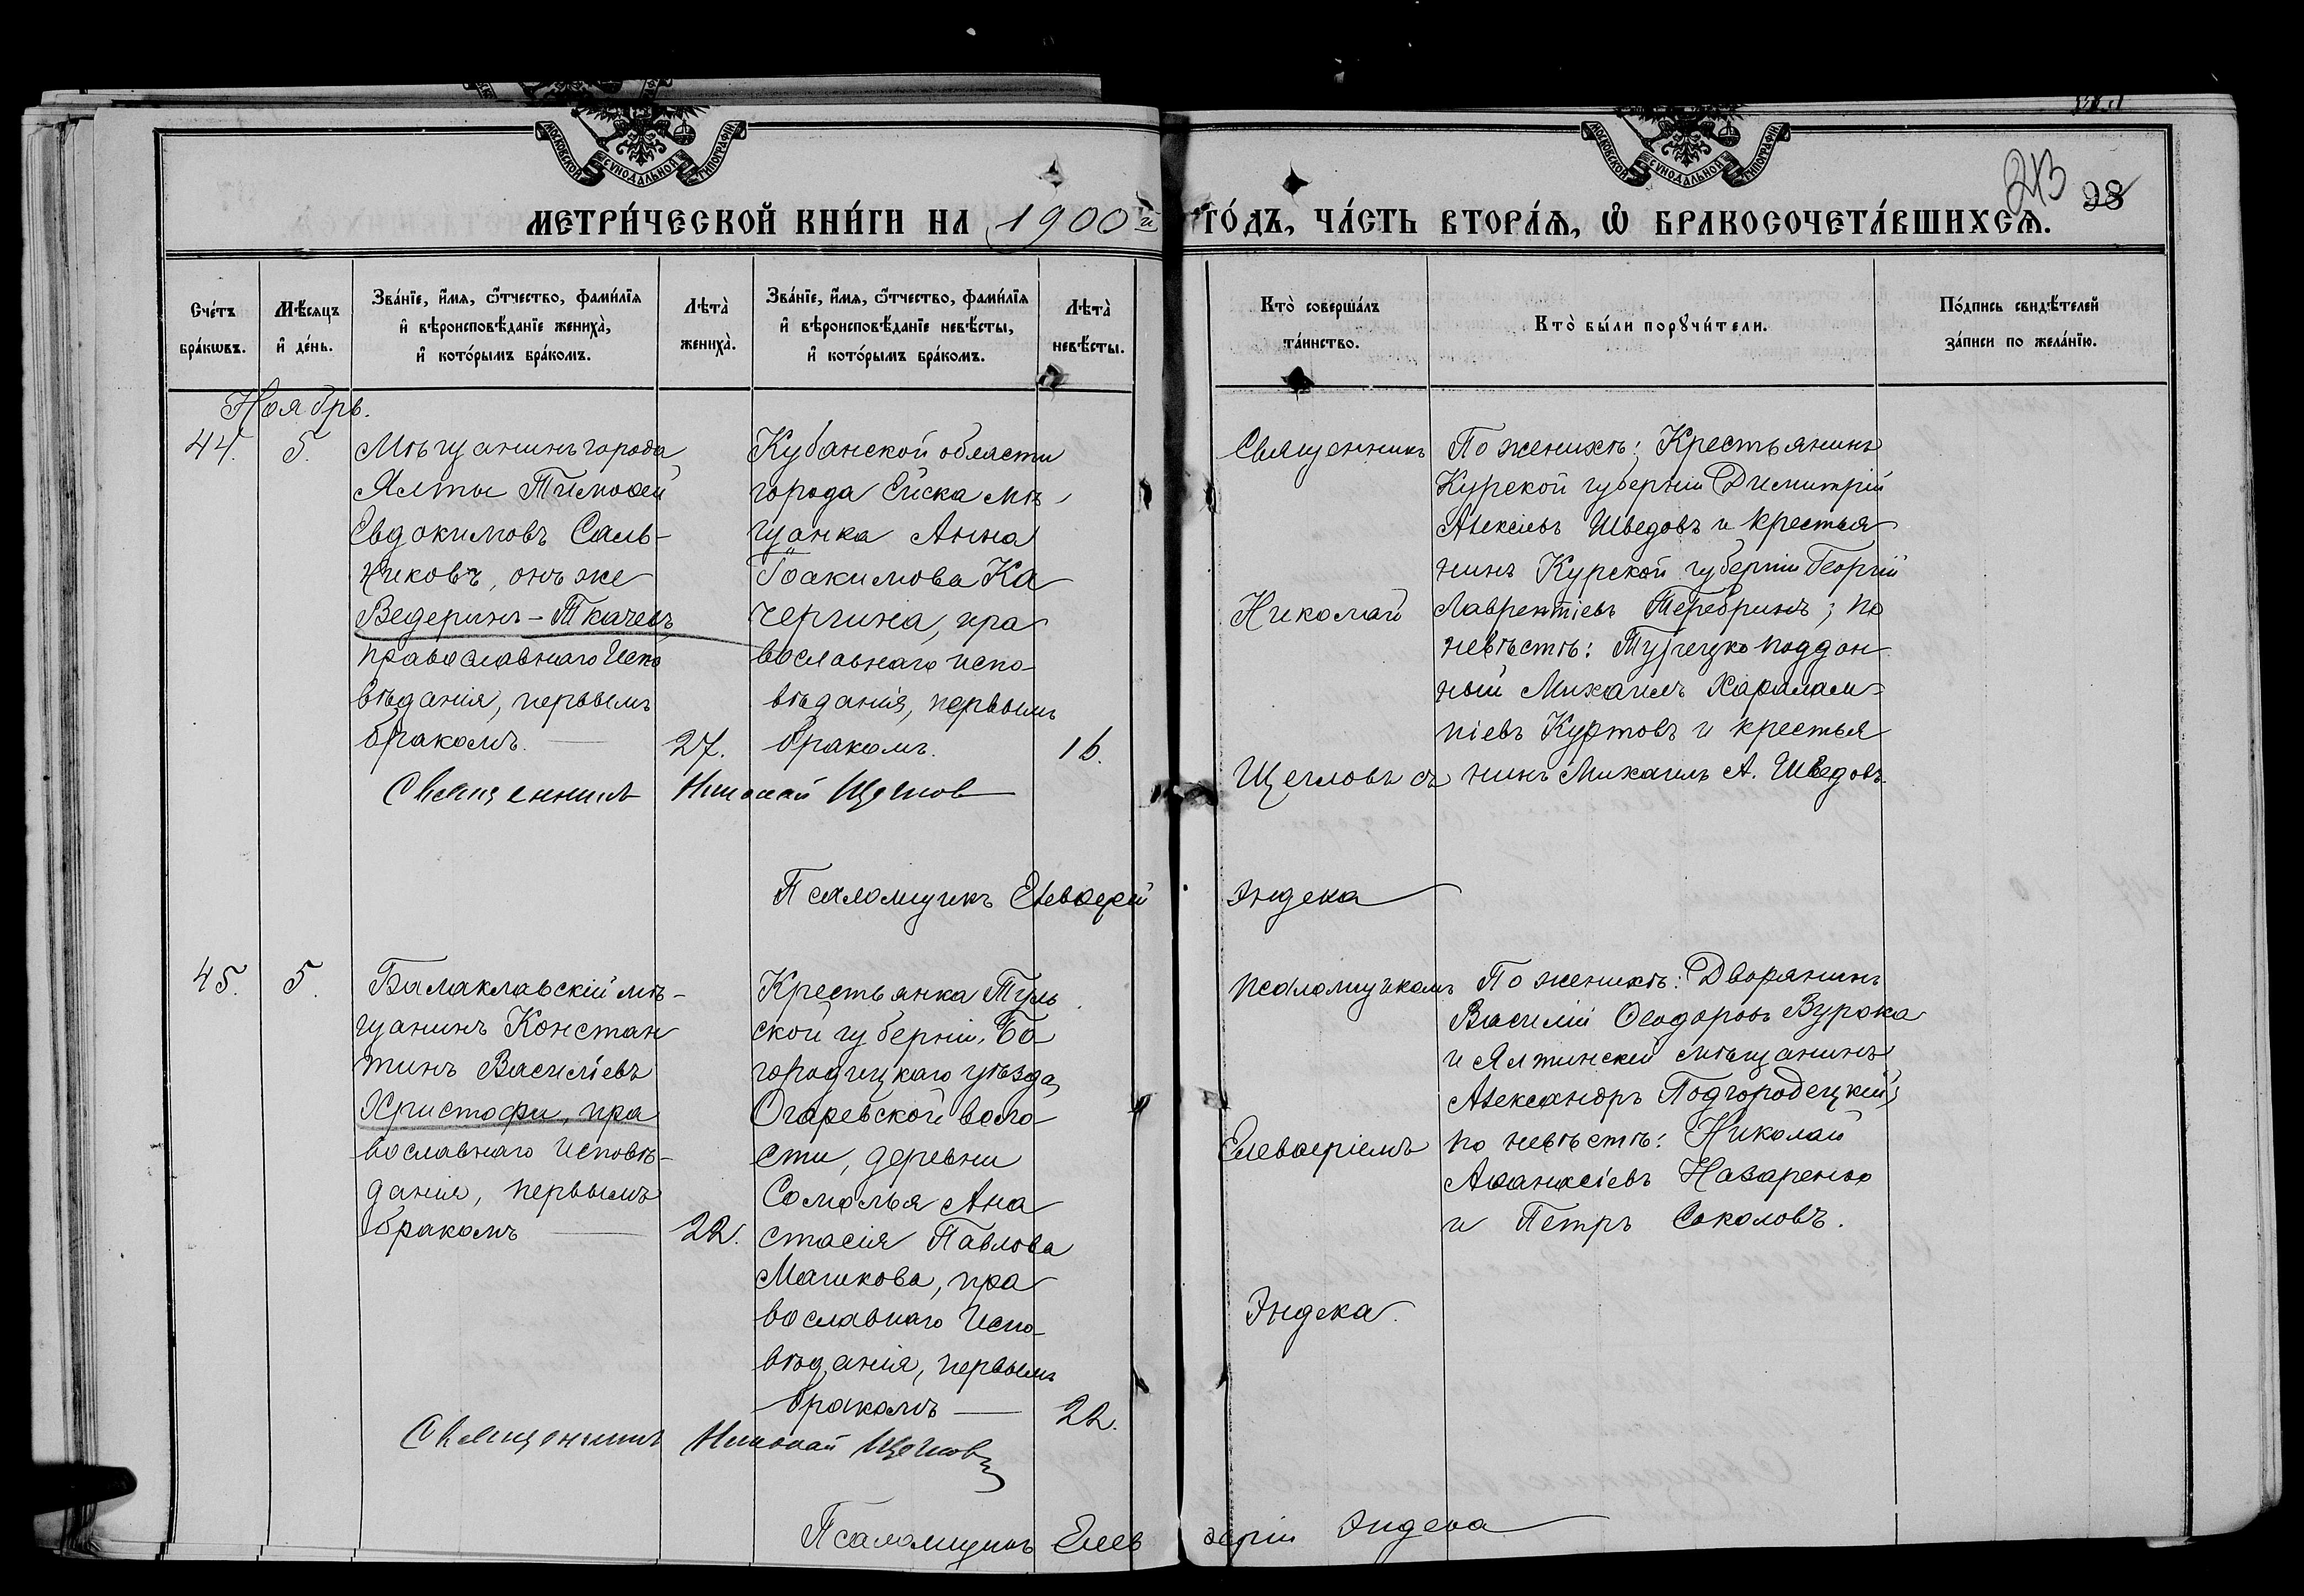 МОСКОВСКОЙ СѴНОДАЛЬНОЙ ТИПОГРАФІИ
МОСКОВСКОЙ СѴНОДАЛЬНОЙ ТИПОГРАФІИ
213 98
МЕТРИ́ЧЕСКОЙ КНИ́ГИ НА 1900й ГО́ДЪ, ЧА́СТЬ ВТОРА́Ѧ, Ѡ҆ БРАКОСОЧЕТА́ВШИХСѦ.
Сче́тъ бра́кѡвъ.
Мѣ́сѧцъ и҆ де́нь.
Зва́нїе, и҆́мѧ, ѻ҆́тчество, фами́лїѧ
и҆ вѣроисповѣ́данїе жениха̀,
и҆ кото́рымъ бра́комъ.
Лѣта̀ жениха̀.
Зва́нїе, и҆́мѧ, ѻ҆́тчество, фами́лїѧ
и҆ вѣроисповѣ́данїе невѣ́сты,
и҆ кото́рымъ бра́комъ.
Лѣта̀ невѣ́сты.
Кто̀ соверша́лъ та́инство.
Кто̀ бы́ли порꙋчи́тели.
По́дпись свидѣ́телей
за́писи по жела́нїю.
Ноябрь.
44. 5.
Мѣщанинъ города
Ялты Тимоѳей
Евдокимовъ Саль-
никовъ, онъ же
Ведеринъ-Ткачевъ
православнаго испо
вѣданія, первымъ
бракомъ. 27.
Кубанской области
города Ейска мѣ-
щанка Анна
Іоакимова Ка
чергина, пра
вославнаго испо-
вѣданія, первымъ
бракомъ. 16.
Священникъ
Николай
Щегловъ съ
По женихѣ: Крестьянинъ
Курской губерніи Димитрій
Алексіевъ Шведовъ и крестья
нинъ Курской губерніи Георгій
Лаврентіевъ Теребринъ; по
невѣстѣ: Турецко поддан
ный Михаилъ Харалам-
піевъ Куртовъ и крестья
нинъ Михаилъ А. Шведовъ.
Священникъ Николай Щеглов
Псаломщикъ Елевѳерій Эндека
45. 5.
Балаклавскій мѣ-
щанинъ Констан
тинъ Василіевъ
Христофи, пра
вославнаго исповѣ-
данія, первымъ
бракомъ 22.
Крестьянка Туль
ской губерніи, Бо
городицкаго уѣзда,
Огаревской воло-
сти, деревни
Сомолья Ана
стасія Павлова
Машкова, пра
вославнаго испо-
вѣданія, первымъ
бракомъ 22.
псаломщикомъ
Елевѳеріемъ
Эндека.
По женихѣ: Дворянинъ
Василій Ѳеодоровъ Вурака
и Ялтинскій мѣщанинъ
Александръ Подгородецкій;
по невѣстѣ: Николай
Аѳанасіевъ Назаренко
и Петръ Соколовъ.
Священникъ Николай Щеглов
Псаломщикъ Елевѳерій Эндека